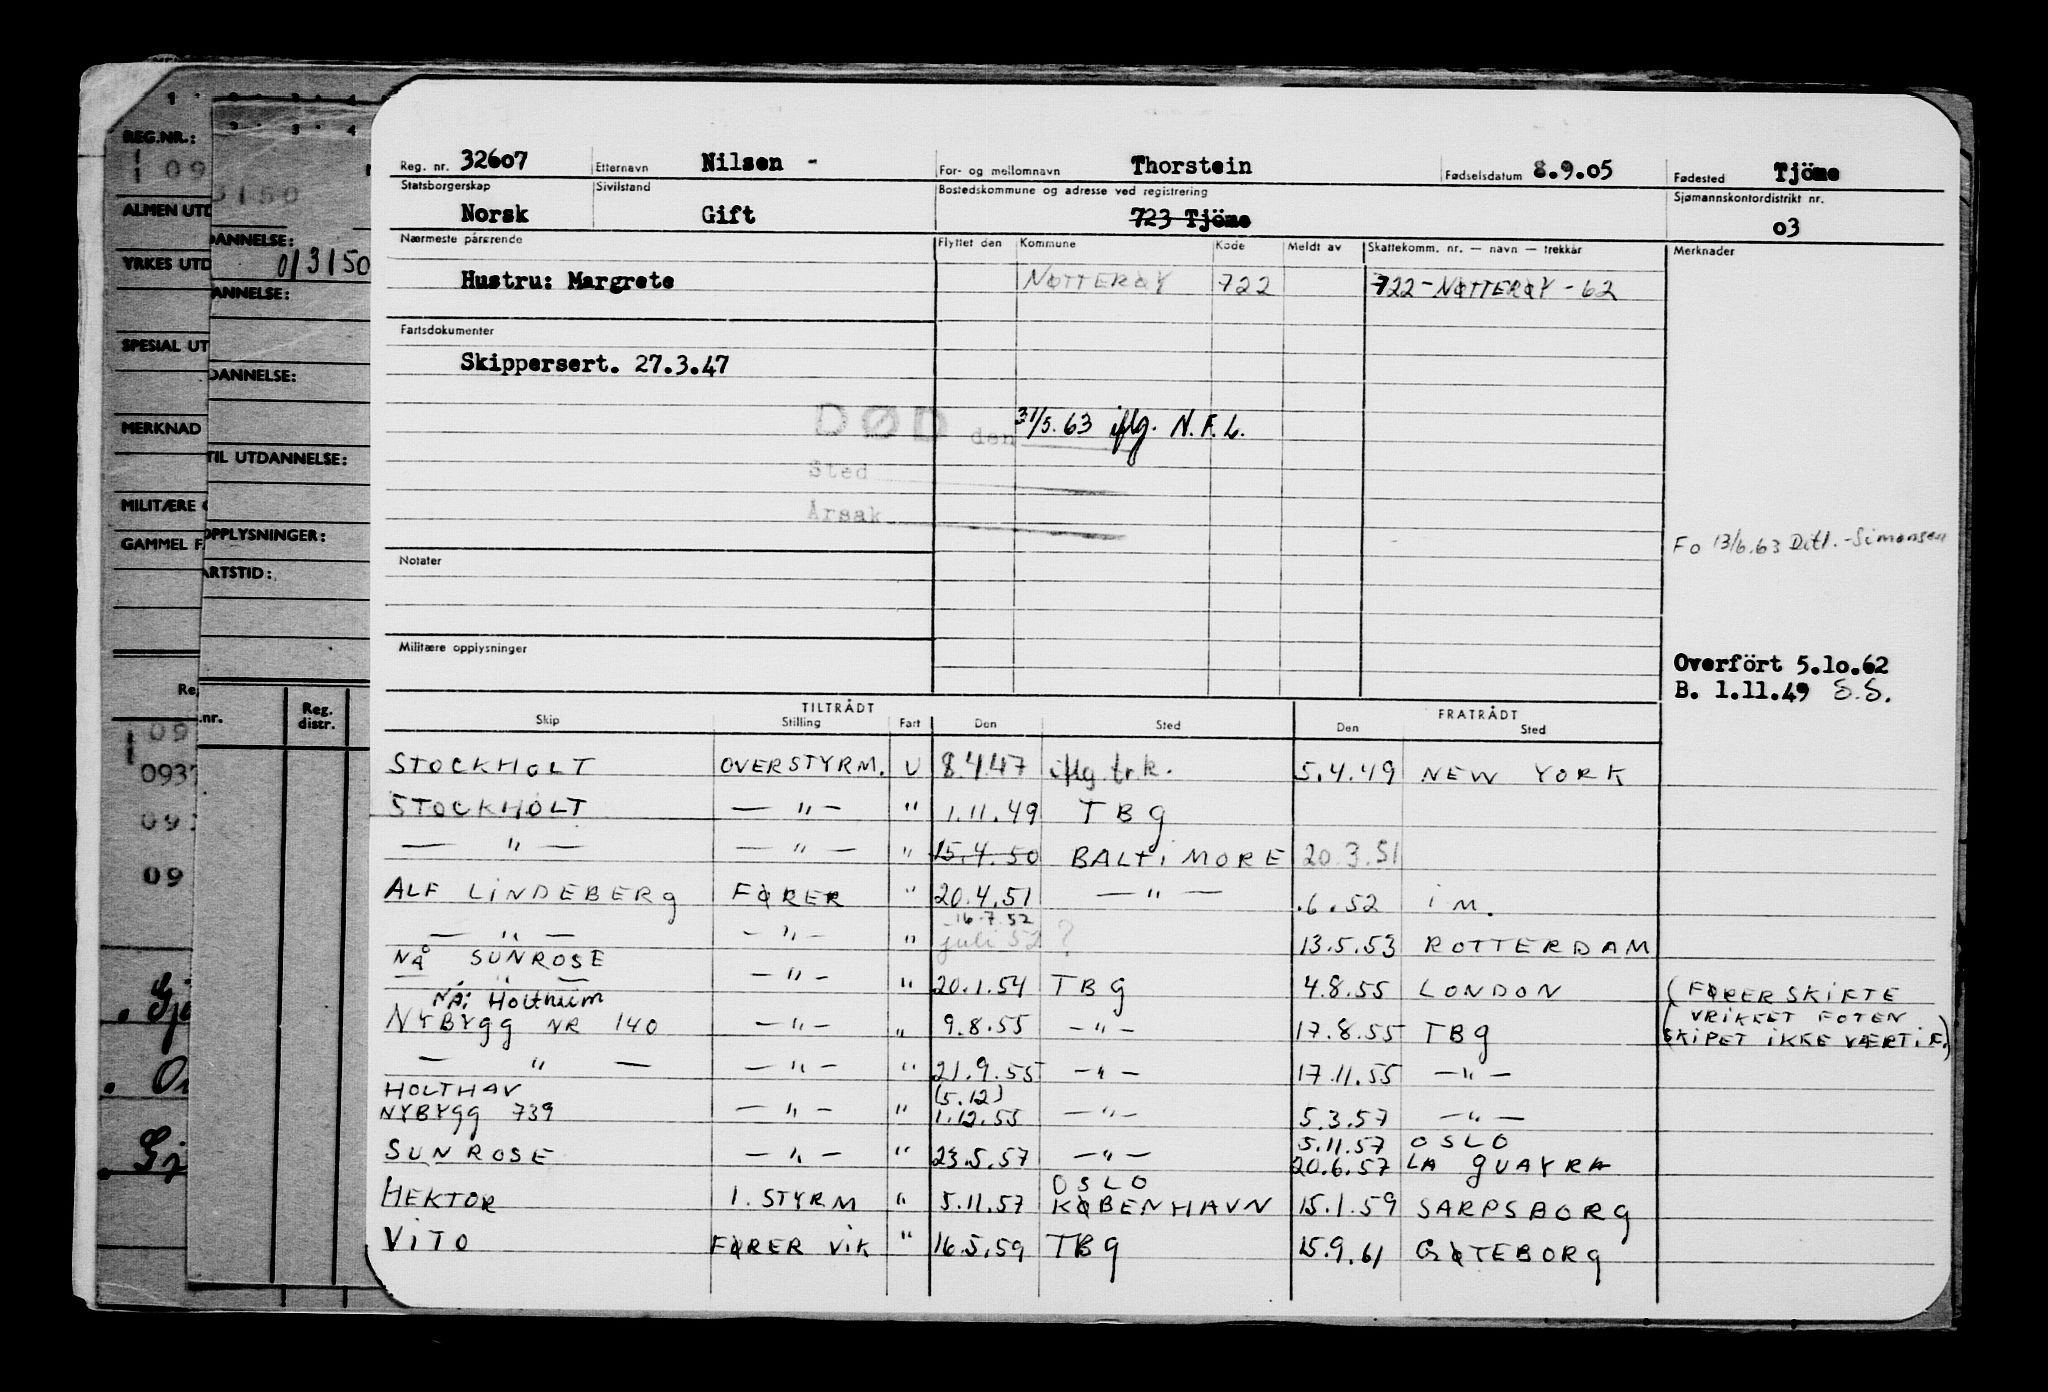 Reg. nr. 32607 Etternavn Nilsen - For- og mellomnavn Thorstein Fødselsdatum 8.9.05 Fødested Tjöme
Statsborgerskap Norsk Sivilstand Gift Bostedskommune og adresse ved registrering 723 Tjöme Sjømannskontordistrikt nr. 03
Nærmeste pårørende Flyttet den Kommune Kode Meldt av Skattekomm. nr. — navn — trekkår Merknader
Hustru: Margrete NØTTERØY 722 722-NØTTERØY-62
Fartsdokumenter
Skippersert. 27.3.47
DØD den 31/5.63 iflg. N.F.L.
Sted
Årsak
Fo 13/6.63 Ditl.-Simonsen
Notater
Militære opplysninger
Overfört 5.10.62
B. 1.11.49 S.S.
TILTRÅDT FRATRÅDT
Skip Stilling Fart Den Sted Den Sted
STOCKHOLT OVERSTYRM. U 8.4.47 iflg. trk. 5.4.49 NEW YORK
STOCKHOLT — " — " 1.11.49 TBG
— " — — " — " 15.4.50 BALTIMORE 20.3.51
ALF LINDEBERG FØRER " 20.4.51 — " — .6.52 i M.
16.7.52
— " — — " — " juli 52 ? 13.5.53 ROTTERDAM
NÅ SUNROSE
— " — — " — " 20.1.54 TBG 4.8.55 LONDON (FØRERSKIFTE
NÅ: Holtheim (VRIKKET FOTEN
NYBYGG NR 140 — " — " 9.8.55 — " — 17.8.55 TBG SKIPET IKKE VÆRT i F.)
— " — — " — " 21.9.55 — " — 17.11.55 — " —
HOLTHAV (5.12)
NYBYGG 739 — " — " 1.12.55 — " — 5.3.57 — " —
5.11.57 OSLO
SUNROSE — " — " 23.5.57 — " — 20.6.57 LA GUAYRA
OSLO
HEKTOR 1. STYRM " 5.11.57 KØBENHAVN 15.1.59 SARPSBORG
VITO FØRER VIK " 16.5.59 TBG 15.9.61 GØTEBORG
REG.NR.:
ALMEN UTD
DANNELSE:
013150
YRKES UTD
ANNELSE:
SPESIAL UT
DANNELSE:
MERKNAD
TIL UTDANNELSE:
MILITÆRE
OPPLYSNINGER:
GAMMEL F
ARTSTID:
Reg. distr.
.nr.